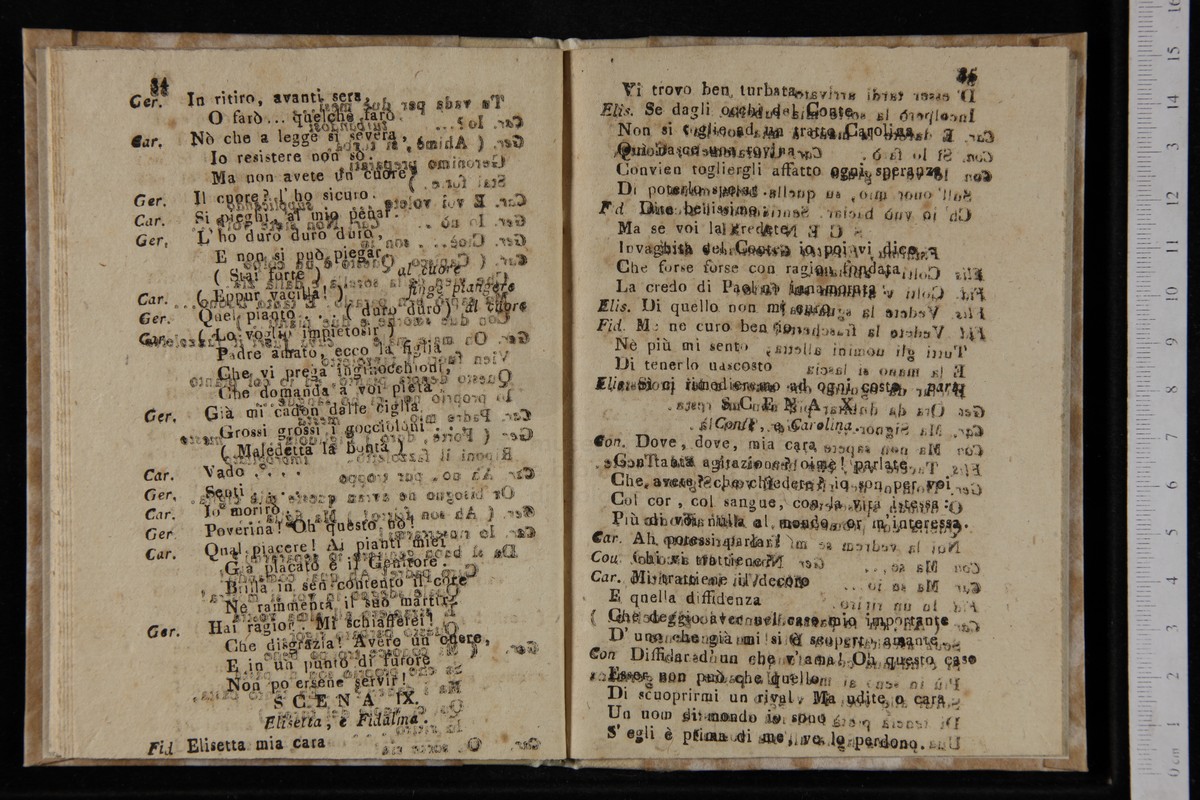 34
Ger. In ritiro, avanti sera.
O farò... quelche farò.
Car. Nò che a legge si severa,
Io resistere non so.
Ma non avete un cuore?
Ger. Il cuore? l' ho sicuro.
Car. Si pieghi al mio penar.
Ger, L' ho duro duro duro,
E non si può piegar.
( Stai forte ) al cuore
Car. ( Eppur vacilla! ) finge piangere
Ger. Quel pianto . . . ( duro duro ) al cuore
( Lo voglio impietosir )
Padre amato, ecco la figlia
Che vi prega inginocchioni,
Che domanda a voi pietà.
Ger. Già mi cadon dalle ciglia
Grossi grossi i goccioloni . .
( Maledetta la bontà )
Car. Vado . . .
Ger. Senti . . .
Car. Io morirò.
Ger Poverina! Oh questo nò!
Car. Qual piacere! Ai pianti miei
Già placato è il Genitore.
Brilla in sen contento il core
Nè rammenta il suo martir.
Ger. Hai ragior. Mi schiafferei!
Che disgrazia! Avere un cuore,
E in un punto di furore
Non po ersene servir!
SCENA IX.
Elisetta, e Fidalma.
Fid Elisetta mia cara
35
Vi trovo ben turbata.
Elis. Se dagli occhi del Conte
Non si toglie ad un tratto Carolina
Qui nasce una rovina
Convien togliergli affatto ogni speranza
Di poterlo
Fd Due bellissime
Ma se voi la credete
Invaghita del Conte, io poi vi dico
Che forse forse con ragion fondata
La credo di Paolino innamorata
Elis. Di quello non mi curo
Fid. M: ne curo ben
Nè più mi sento
Di tenerlo nascosto
Elis. Si ci rimedieremo ad ogni costo. part.
SCENA X.
Il Conte, e Carolina.
Con. Dove, dove, mia cara
Con tanta agitazione! oime! parlate
Che avete? che chiedete? io son per voi
Col cor, col sangue, con la vita istessa:
Più di voi nulla al mondo or m' interessa.
Car. Ah potessi parlar!
Cou. Chi vi trattiene
Car. Mi trattiene il decoro
E quella diffidenza
Che deggio aver nel caso mio importante
D' uno che già mi si è scoperto amante
Con Diffidar d' un che v' ama! Oh questo caso
Esser non può che quello
Di scuoprirmi un rival. Ma udite, o cara,
Un uom di mondo io sono
S' egli è prima di me, ve lo perdono.